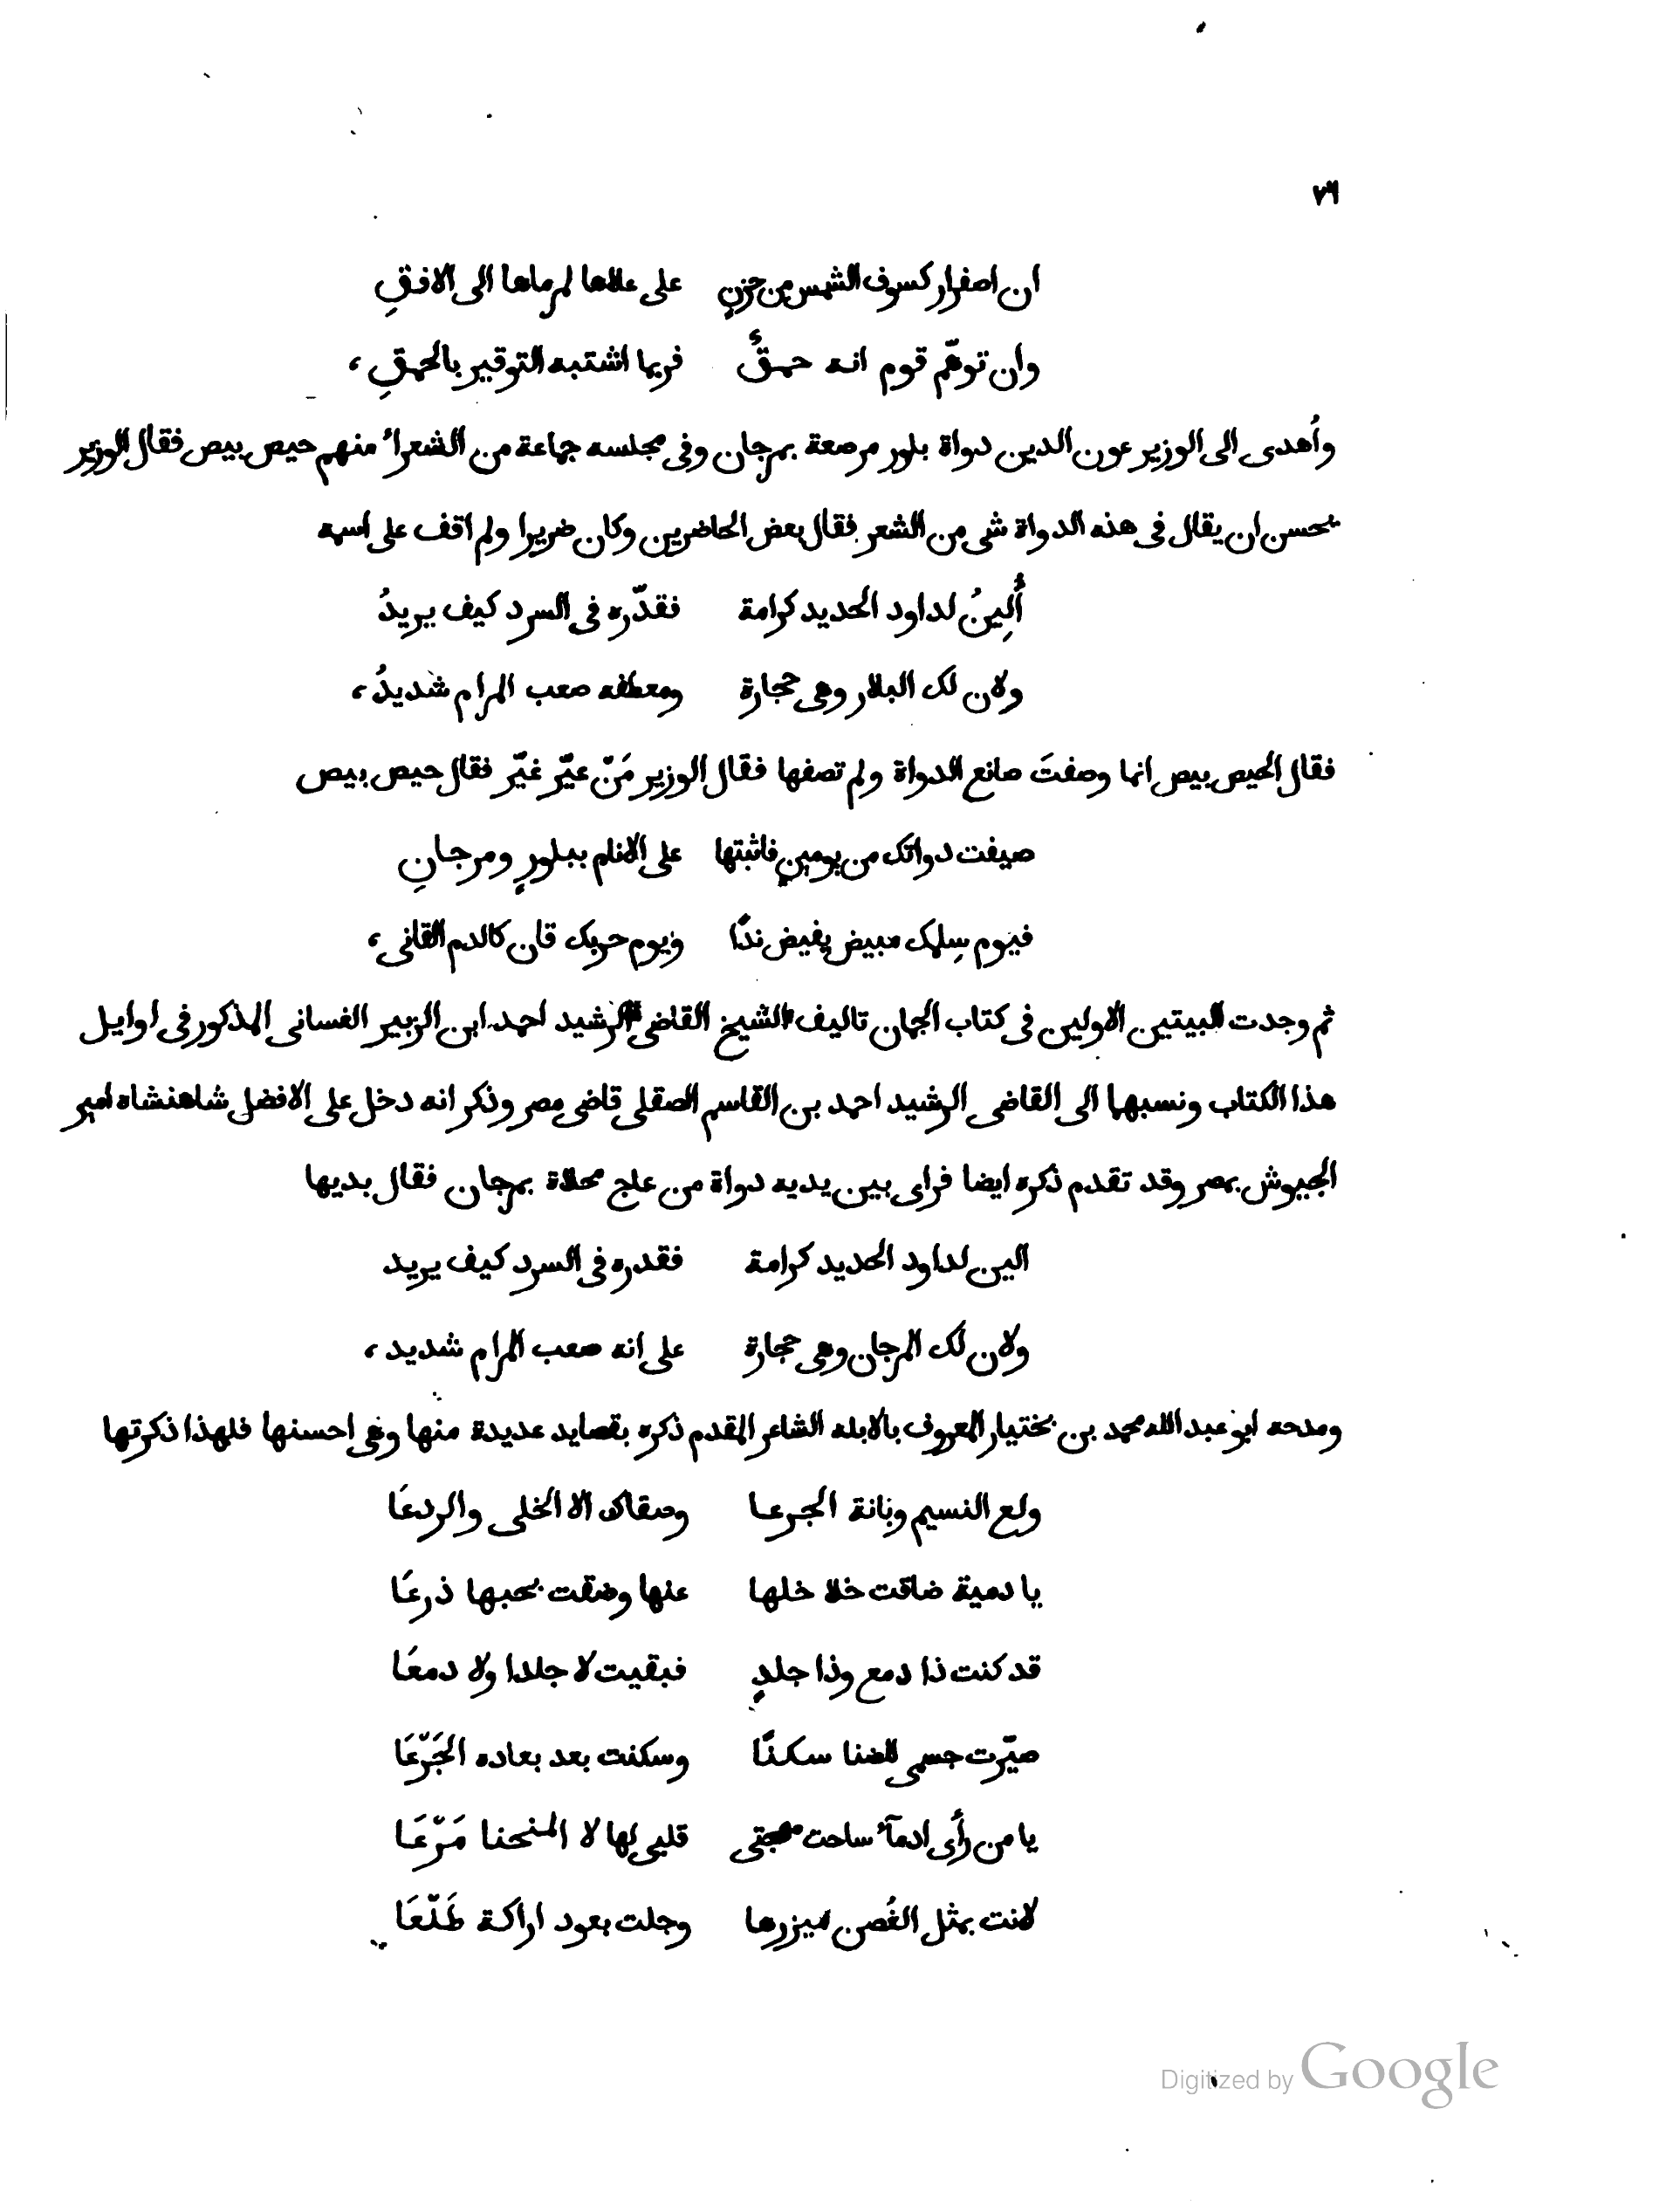 ٧٦
ان اصفرار كسوف الشمس من حزنٍ على علاها لمرماها الى الافقِ
وان توهّم قوم انه حمقٌ فربما اشتبه التوقير بالحمقِ ،
وأهدى الى الوزير عون الدين دواة بلور مرصعة بمرجان وفى مجلسه جماعة من الشعراء منهم حيص بيص فقال الوزير
يحسن ان يقال فى هذه الدواة شى من الشعر فقال بعض الحاضرين وكان ضريرا ولم اقف على اسمه
أُلِينُ لداود الحديد كرامة فقدّره فى السرد كيف يريدُ
ولان لك البلار وهى حجارة ومعطفه صعب المرام شديدُ ،
فقال الحيص بيص انما وصفتَ صانع الدواة ولم تصفها فقال الوزير مَنْ عيّر غيّر فقال حيص بيص
صيغت دواتك من يومين فاثبتها على الانام ببلورٍ ومرجانِ
فيوم سِلمك مبيض يفيض ندًا ويوم حربك قان كالدم القانى ،
ثم وجدت البيتين الاولين فى كتاب الجهان تاليف الشيخ القاضى الرشيد احمد ابن الزبير الغسانى المذكور فى اوايل
هذا الكتاب ونسبهما الى القاضى الرشيد احمد بن القاسم الصقلى قاضى مصر وذكر انه دخل على الافضل شاهنشاه امير
الجيوش بمصر وقد تقدم ذكره ايضا فراى بين يديه دواة من عاج محلاة بمرجان فقال بديها
الين لداود الحديد كرامة فقدره فى السرد كيف يريد
ولان لك المرجان وهى حجارة على انه صعب المرام شديد ،
ومدحه ابو عبد الله محمد بن بختيار المعروف بالابله الشاعر المقدم ذكره بقصايد عديدة منها وهى احسنها فلهذا ذكرتها
ولع النسيم وبانة الجرعا وصقاك الا الخلى والردعَا
يا دمية ضاقت خلا خلها عنها وضقت بحبها ذرعَا
قد كنت ذا دمع وذا جلدٍ فبقيت لا جلدا ولا دمعَا
صيّرت جسمى للضنا سكنًا وسكنت بعد بعاده الجَرْعَا
يا من رأى ادمآء ساحت مهجتى قلبى لها لا المنحنا مَرْعَا
لانت بمثل الغُصن ميزرها وجلت بعود اراكة طَلْعَا
Digitized by Google